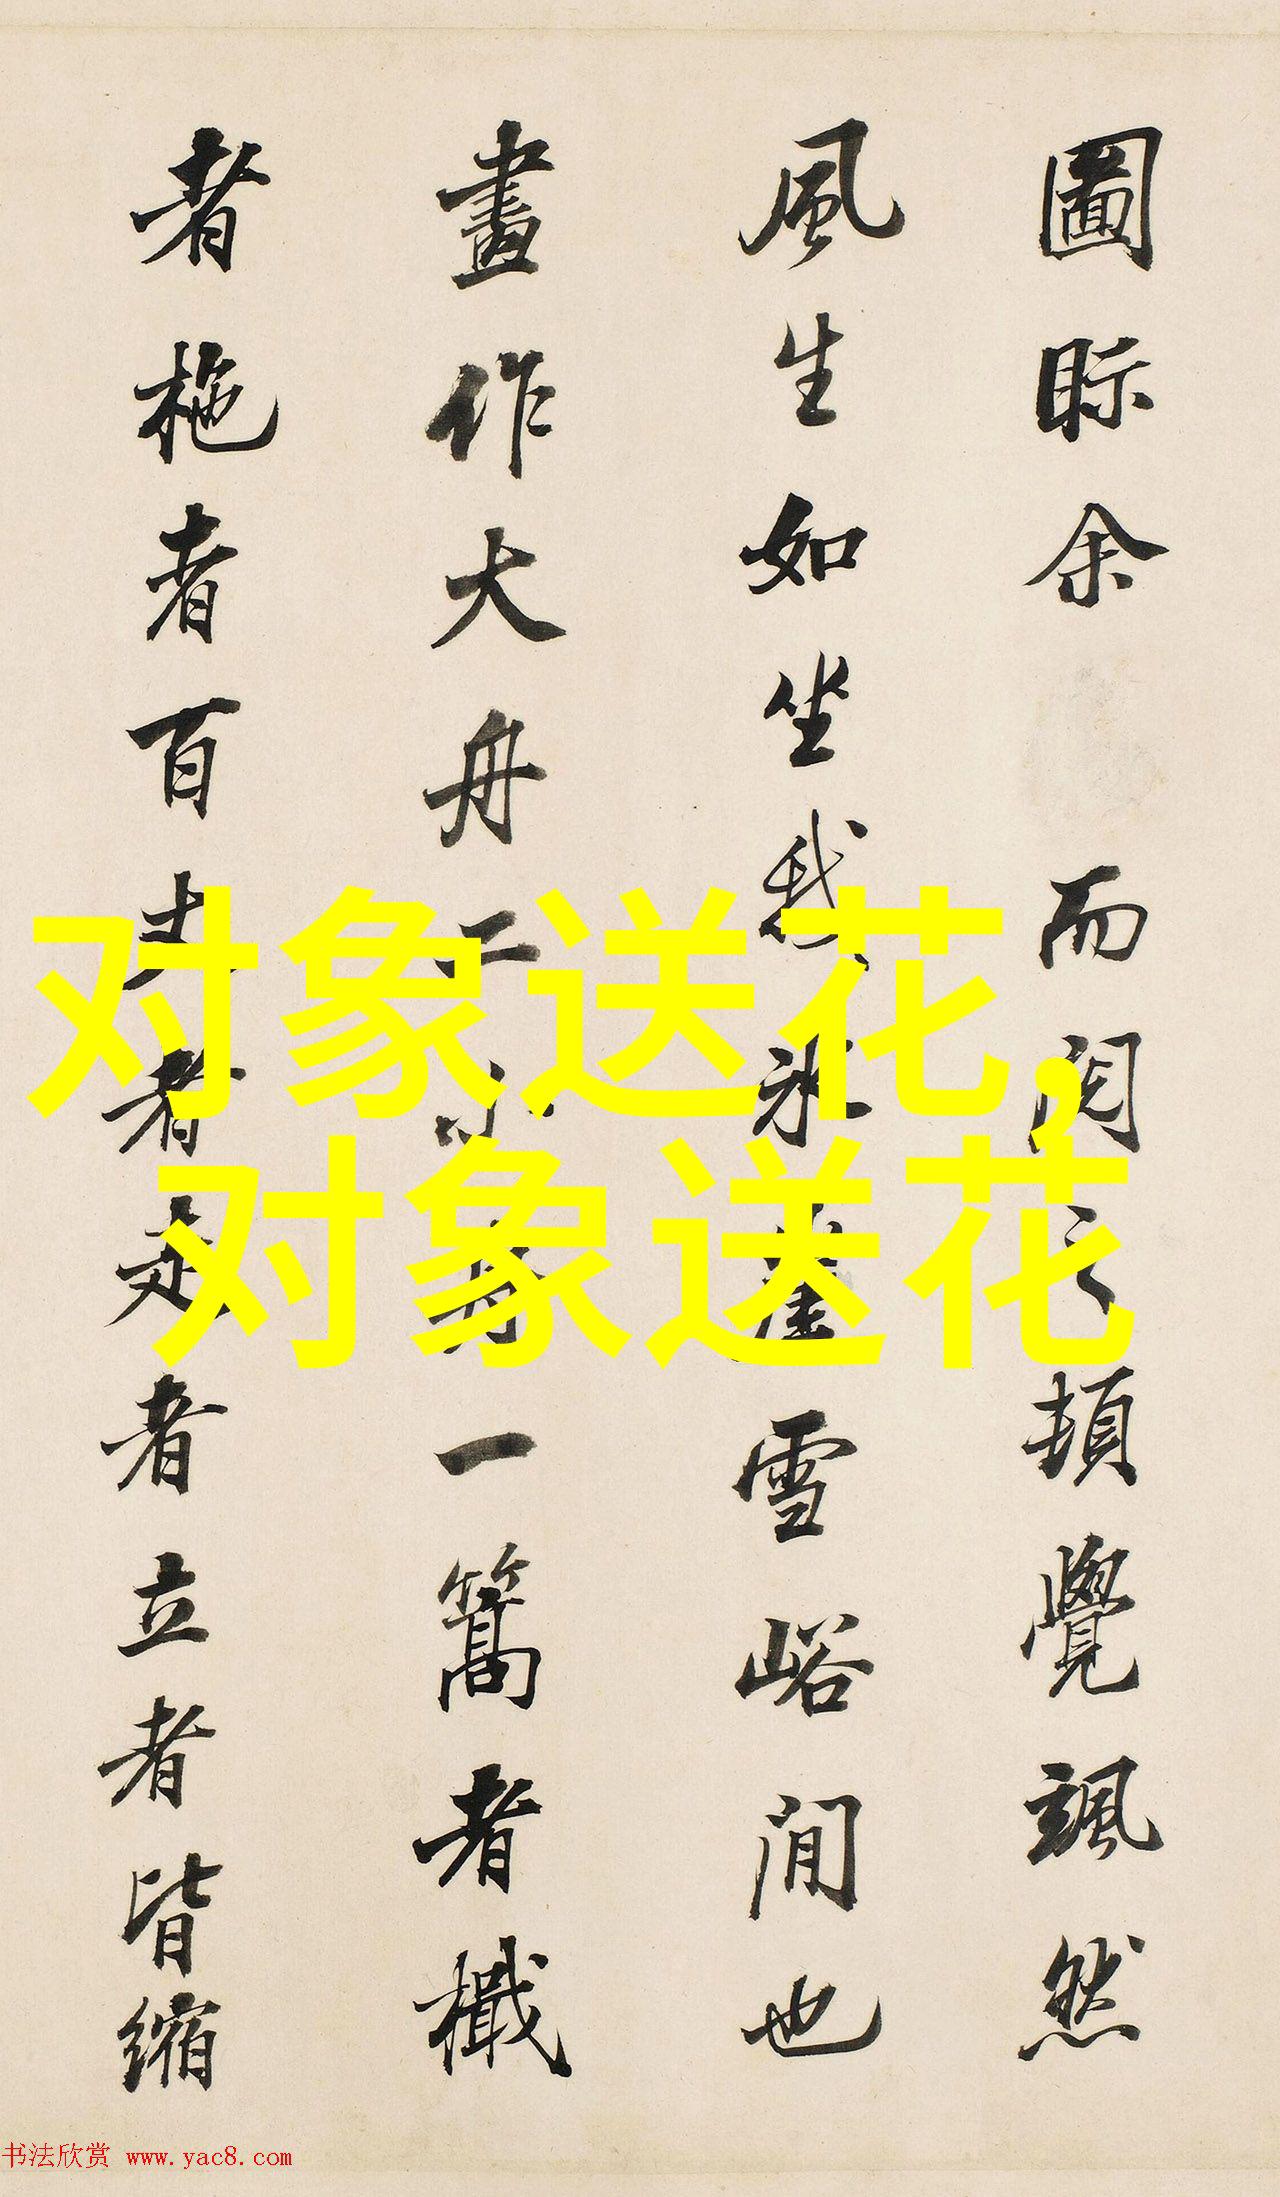 圖眎余 而閱之頓覺颯然
風生如坐我氷崖雪峪間也
畫作大舟二小舟一篙者檝
者柂者百丈者走者立者皆縮
对象送花，
对象送花
书法欣赏 www.yac8.com